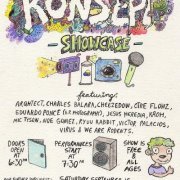 KONSEPT
-SHOWCASE-
featuring:
ARCHITECT, CHARLES BALABA, CHEEZEDOW, CIRE FLOWZ,
EDUARDO PONCE
JESUS HEREDIA, KROH,
MIC TYSON, NOE GOMEZ, RYUU RABBIT, VICTOR PALACIOS,
VIRUS & WE ARE RODENTS.
DOORS
OPEN
AT
6:30
PERFORMANCES
START
AT
7:30
SHOW IS
FREE
& ALL
AGES
SATURDAY